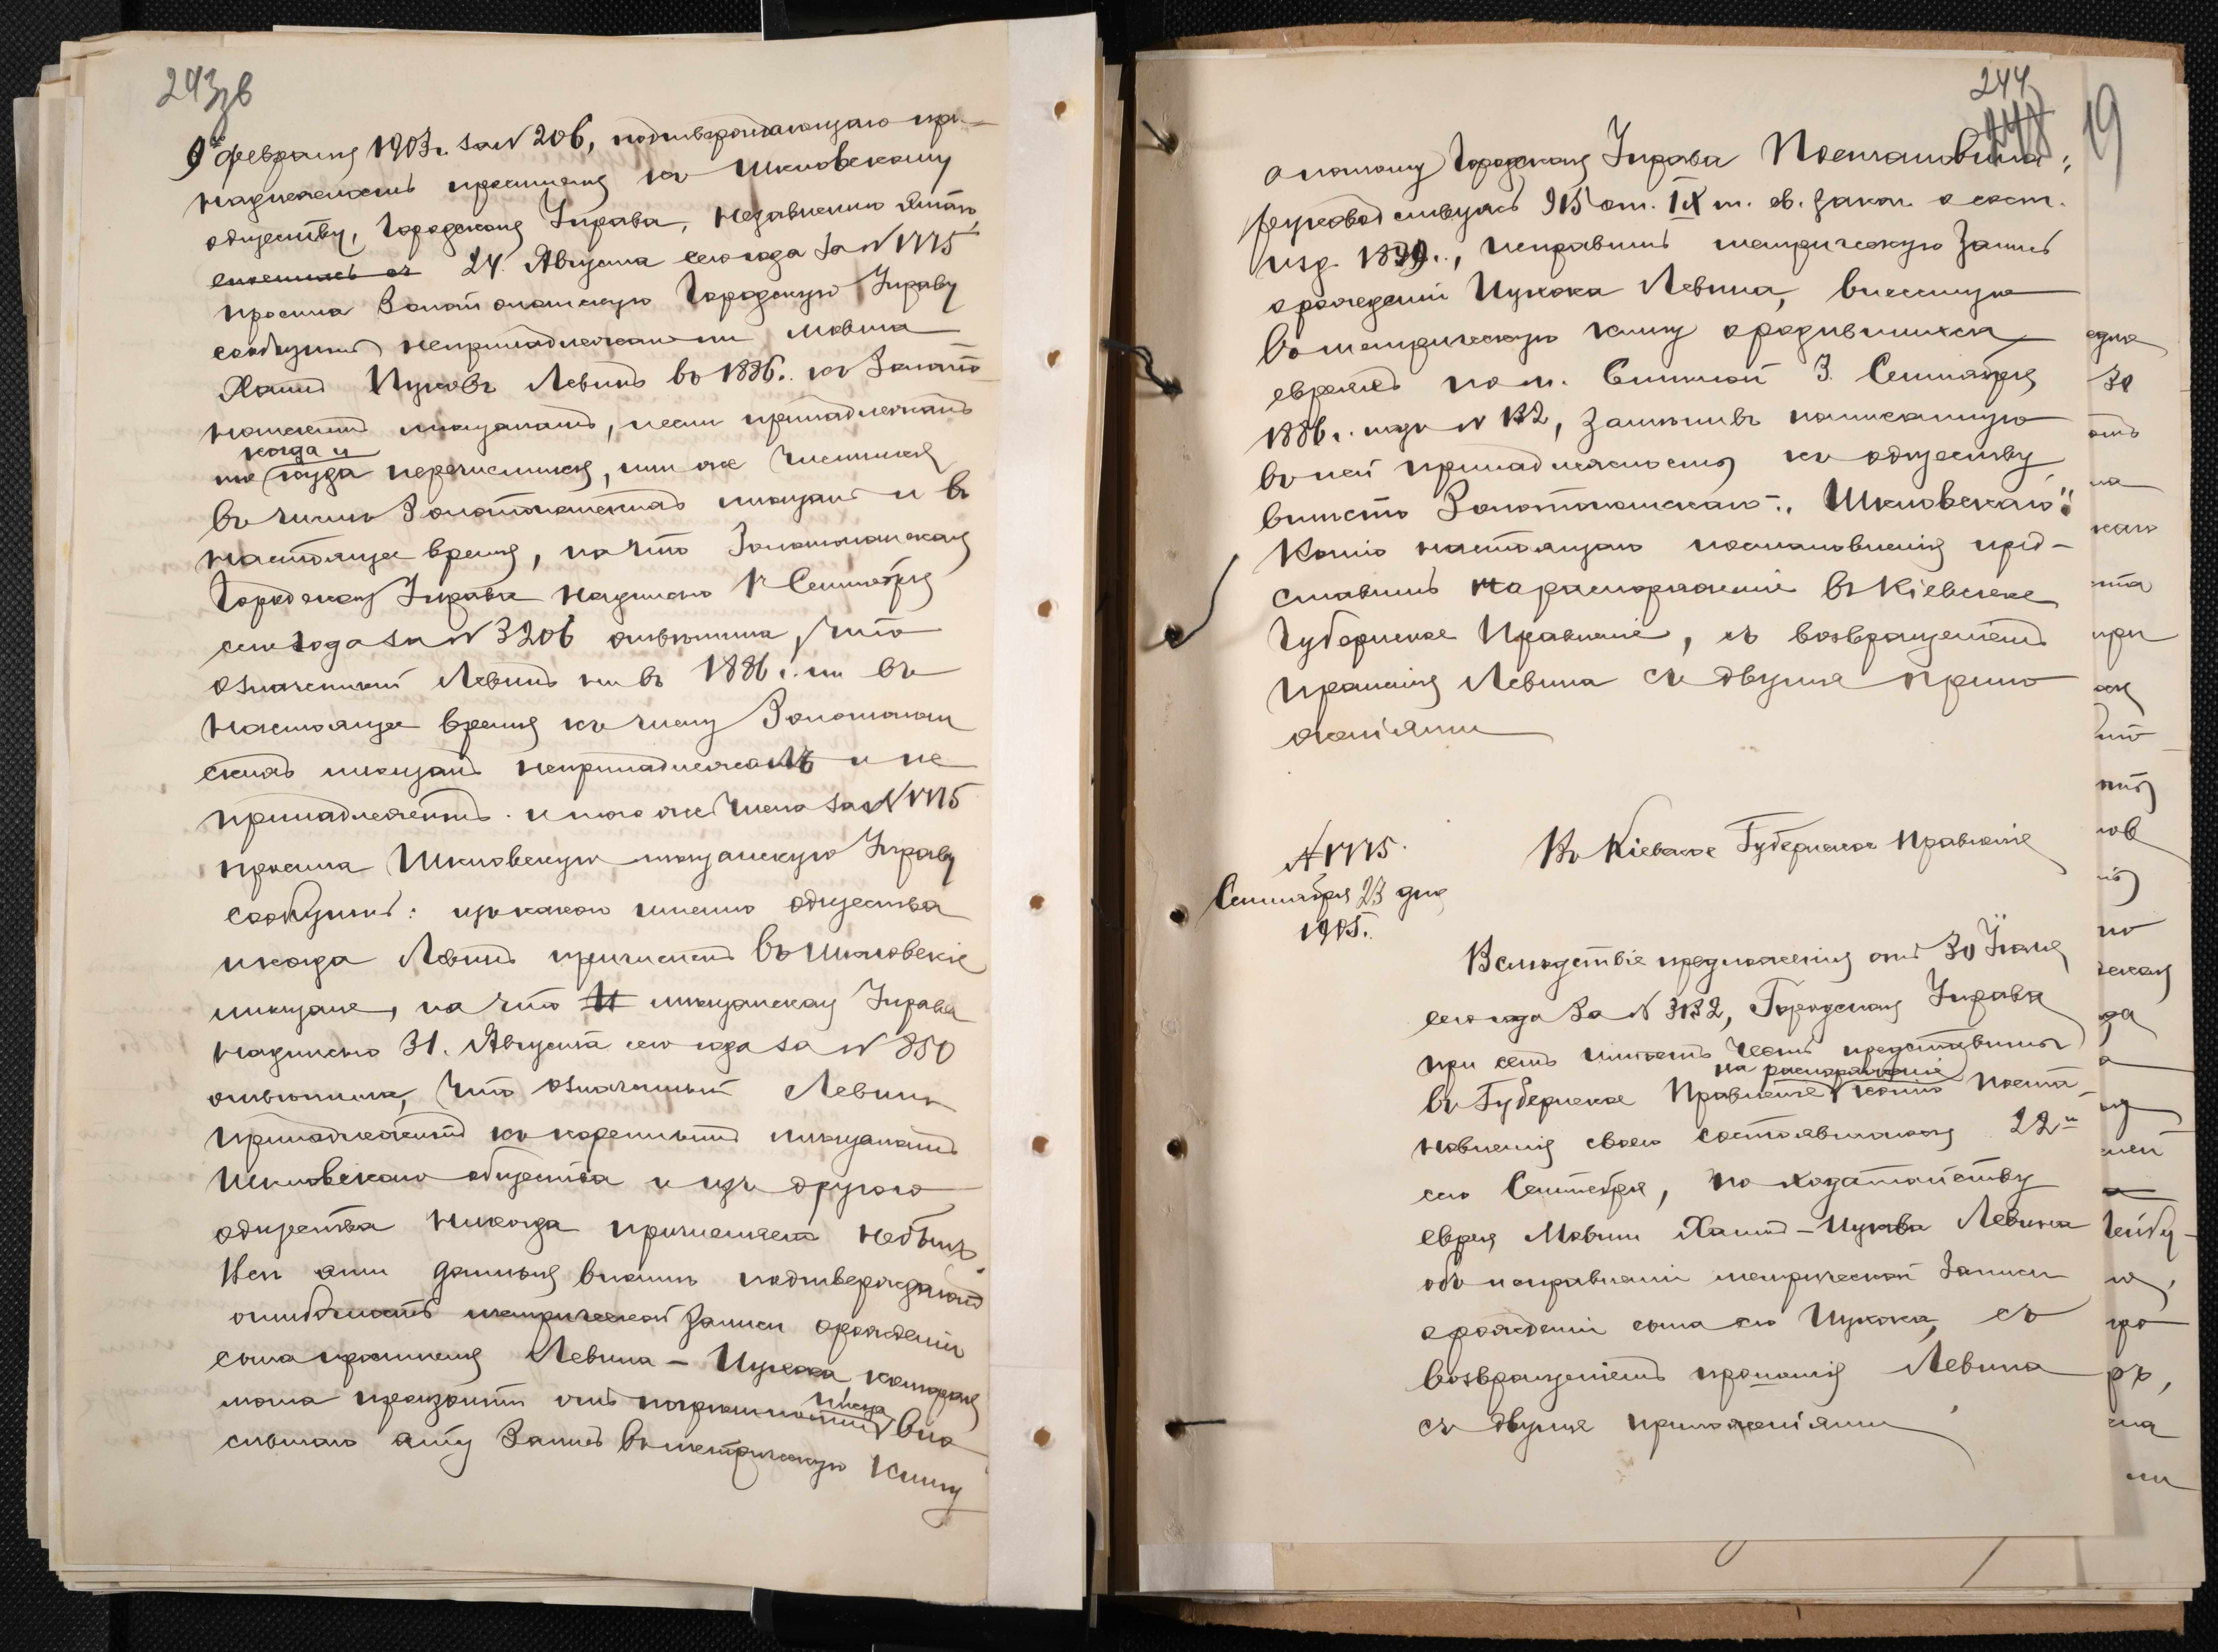 243зв
9го февраля 1903г. за N 206, подтверждающаго при-
надлежность просителя къ Шкловскому
обществу, Городская Управа, независимо этого,
24 Августа сего года за N 1775
просила Золотоношскую Городскую Управу
сообщить непринадлежалъ ли Мовша
Хаимъ Ицковъ Левинъ въ 1886г. къ Золото-
ношскимъ мещанамъ, и если принадлежалъ
когда и
то куда перечислился, или же числится
въ числе Золотоношскихъ мещанъ и въ
настоящее время, на что Золотоношская
Городская Управа надписью 1 Сентября
сего года за N 3206 ответила, что
означенный Левинъ ни въ 1886 г. ни въ
настоящее время къ числу Золотонош
скихъ мещанъ непринадлежалъ и не
принадлежитъ. и того же числа за N 1775
просила Шкловскую мещанскую Управу
сообщить: изъ какого именно общества
и когда Левинъ причисленъ въ Шкловскіе
мещане, на что мещанская Управа
надписью 31. Августа сего года за N 850
ответила, что означенный Левинъ
принадлежитъ къ кореннымъ мещанамъ
Шкловскаго общества и изъ другого
общества никогда причисленъ небылъ.
Все эти данныя вполне подтверждаютъ
ошибочность метрической записи о рожденіи
сына просителя Левина - Ицхока, которая
могла произойти отъ погрешности
лица
вно-
сившаго эту запись въ метрическую книгу
244
19
а потому Городская Управа Постановила:
руководствуясь 915 ст. IX т. св. закон. о сост.
изд. 1899г., исправить метрическую запись
о рожденіи Ицхока Левина, внесенную
въ метрическую книгу о родившихся
евреяхъ по м. Смиллой 3 Сентября
1886 г. подъ N 132, заменивъ написанную
въ ней принадлежность къ обществу
вместо Золотоношскаго - „Шкловскаго".
Копію настоящаго постановленія пред-
ставить на распоряженіе въ Кіевское
Губернское Правленіе, съ возвращеніемъ
прошенія Левина съ двумя прило
женіями
N 1775.
Сентября 23 дня
1905.
Въ Кіевское Губернское Правленіе
Вследствіе предложенія отъ 30 Іюня
сего года за N 3132, Городская Управа
при семъ имеетъ честь представить
на распоряженіе
въ Губернское Правленіе копію поста-
новленія своего состоявшагося 22го
сего Сентября, по ходатайству
еврея Мовши Хаимъ-Ицкова Левина
объ исправленіи метрической записи
о рожденіи сына его Ицхока, съ
возвращеніемъ прошенія Левина
съ двумя приложеніями